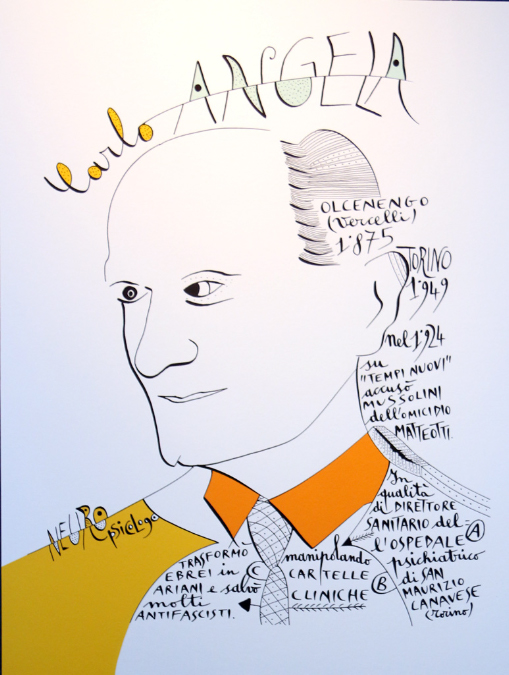 Carlo ANGELA
OLCENENGO
(Vercelli)
1875
TORINO
1949
nel 1924
su
"TEMPI NUOVI"
accusò
MUSSOLINI
dell'OMICIDIO
MATTEOTTI.
In
qualità
di DIRETTORE
SANITARIO del-
l'OSPEDALE A
psichiatrico
di SAN
MAURIZIO
CANAVESE
(Torino)
B
manipolando
CARTELLE
CLINICHE
C
TRASFORMÒ
EBREI in
ARIANI e salvò
molti
ANTIFASCISTI.
NEURO
psicologo